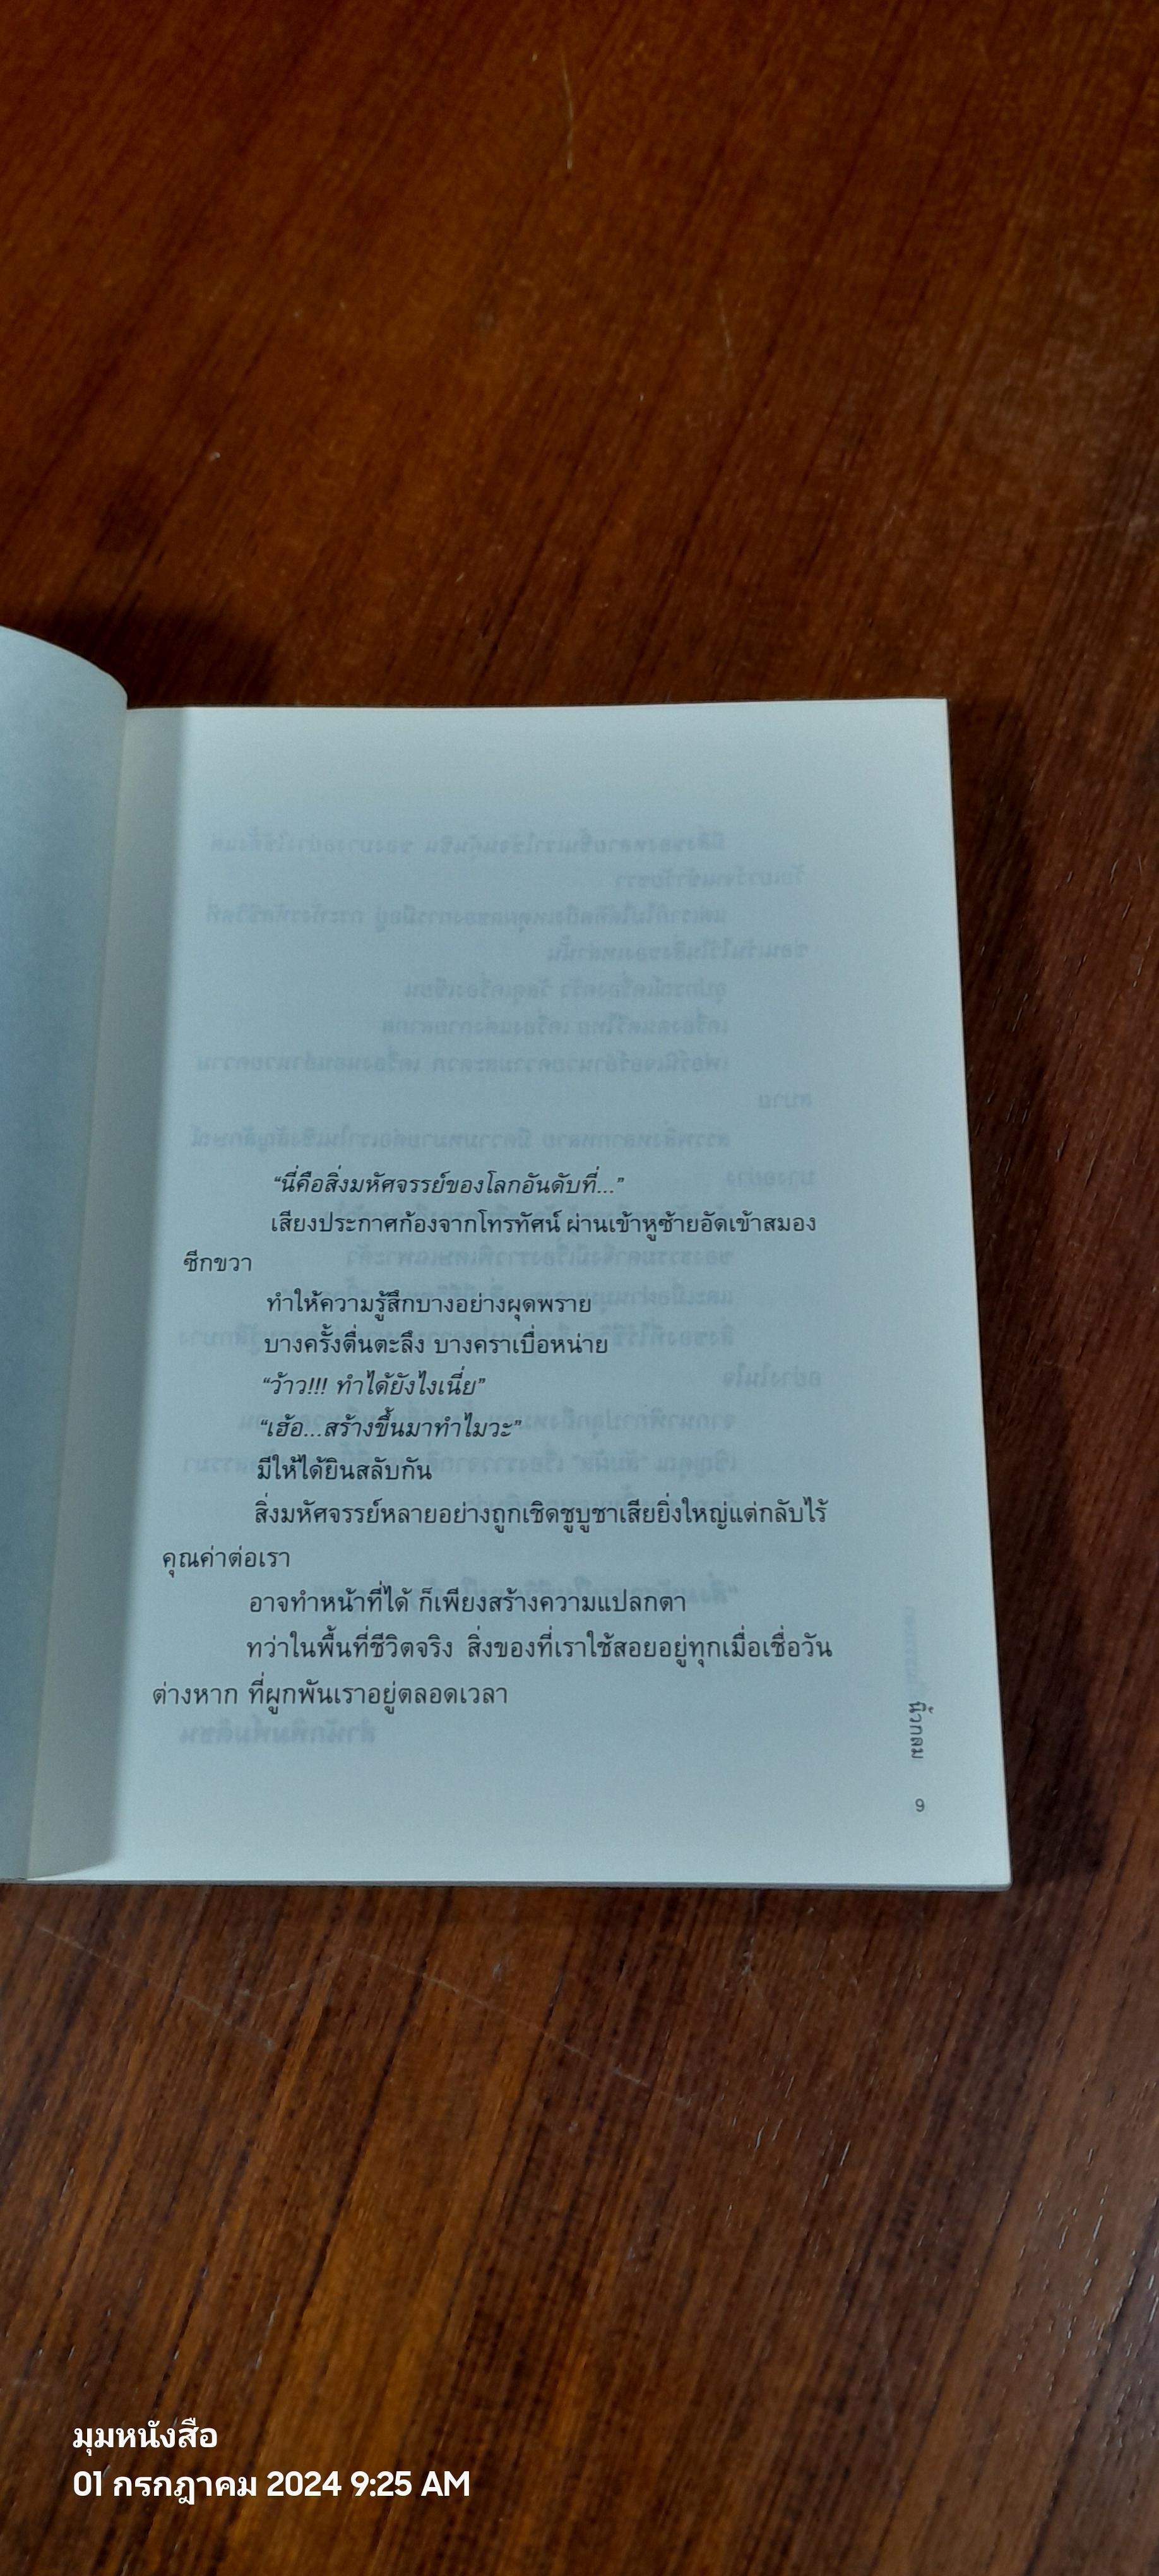 “นี่คือสิ่งมหัศจรรย์ของโลกอันดับที่...”
เสียงประกาศก้องจากโทรทัศน์ ผ่านเข้าหูซ้ายอัดเข้าสมอง
ซีกขวา
ทำให้ความรู้สึกบางอย่างผุดพราย
บางครั้งตื่นตะลึง บางคราเบื่อหน่าย
“ว้าว!!! ทำได้ยังไงเนี่ย”
“เฮ้อ...สร้างขึ้นมาทำไมวะ”
มีให้ได้ยินสลับกัน
สิ่งมหัศจรรย์หลายอย่างถูกเชิดชูบูชาเสียยิ่งใหญ่แต่กลับไร้
คุณค่าต่อเรา
อาจทำหน้าที่ได้ ก็เพียงสร้างความแปลกตา
ทว่าในพื้นที่ชีวิตจริง สิ่งของที่เราใช้สอยอยู่ทุกเมื่อเชื่อวัน
ต่างหาก ที่ผูกพันเราอยู่ตลอดเวลา
นิ้วกลม
9
มุมหนังสือ
01 กรกฎาคม 2024 9:25 AM